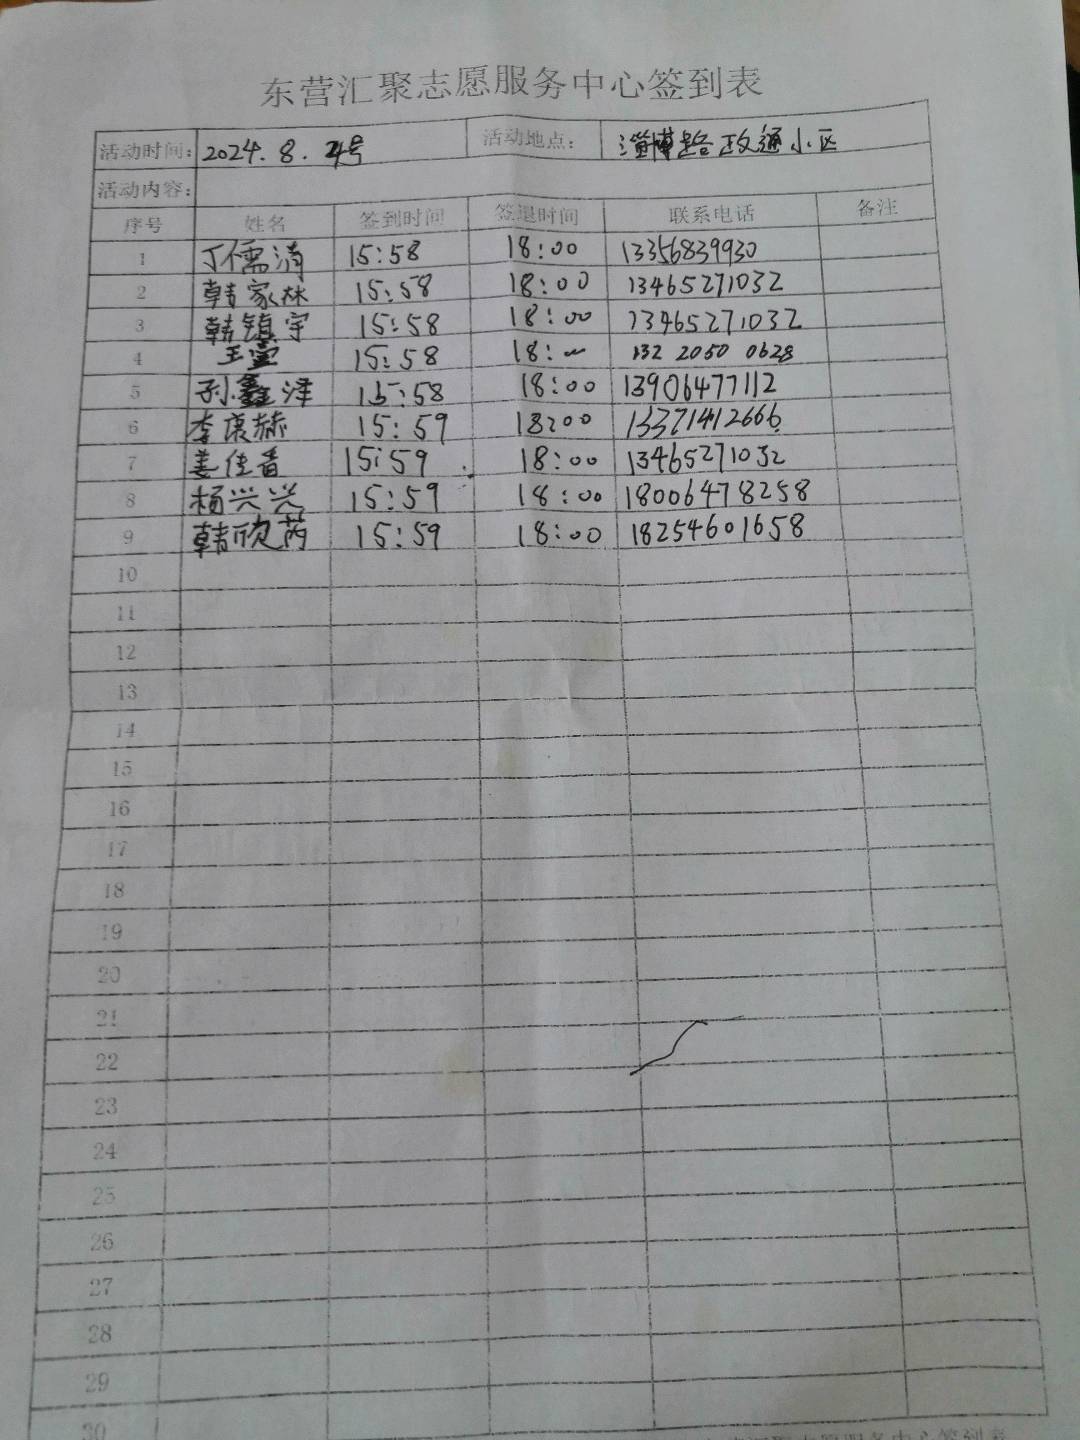 东营汇聚志愿服务中心签到表
活动时间: 2024.8.4号 活动地点: 淄博路政通小区
活动内容:
序号 姓名 签到时间 签退时间 联系电话 备注
1 丁儒清 15:58 18:00 13356839930
2 韩家林 15:58 18:00 13465271032
3 韩镇宇 15:58 18:00 13465271032
4 15:58 18: 132 2050 0628
5 孙鑫泽 15:58 18:00 13906477112
6 李庚赫 15:59 18:00 13371412666
7 姜佳音 15:59 18:00 13465271032
8 杨兴兴 15:59 18:00 18006478258
9 韩欣芮 15:59 18:00 18254601658
10
11
12
13
14
15
16
17
18
19
20
21
22
23
24
25
26
27
28
29
30
东营汇聚志愿服务中心签到表